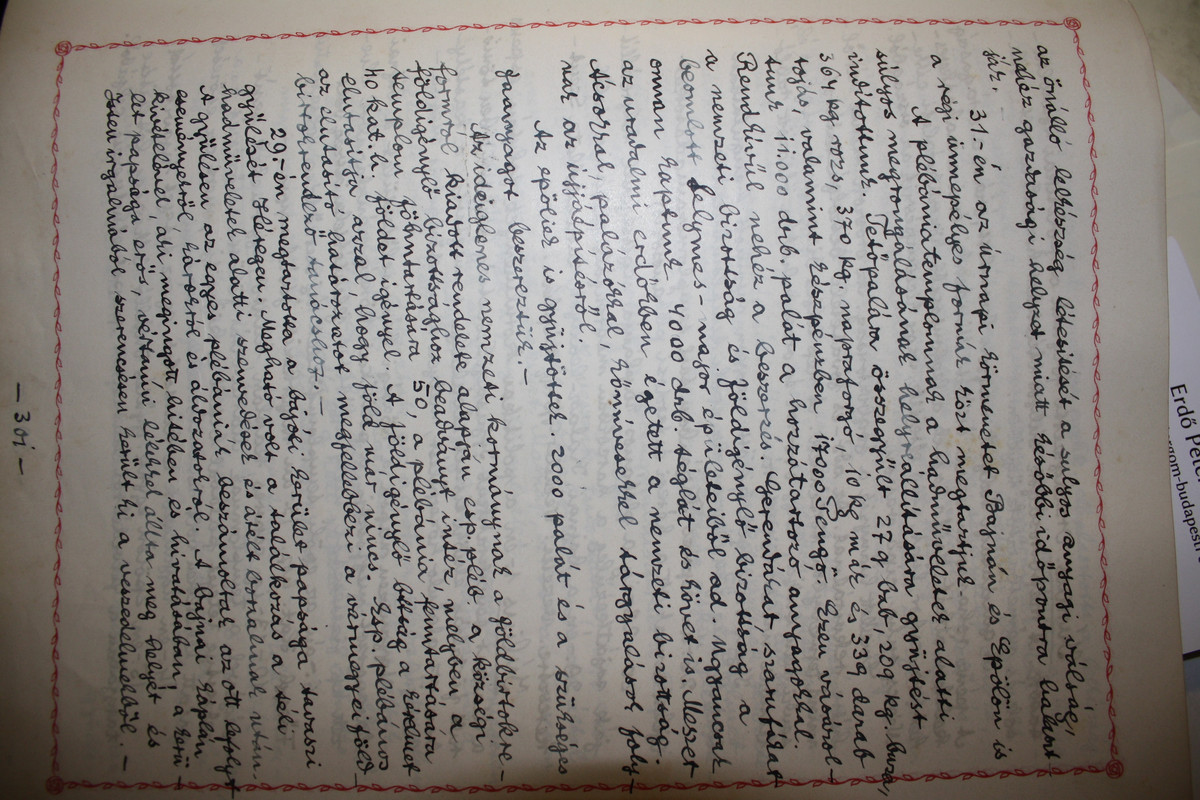 az önálló lelkészség létesítését a sulyos anyagi válság,
nehéz gazdasági helyzet miatt későbbi időpontra halaszt
ják.
31.-én az úrnapi körmenetet Bajnán és Epölön is
a régi ünnepélyes formák közt megtartjuk.-
A plébániatemplomnak a hadműveletek alatti
súlyos megrongálásának helyreállítására gyüjtést
indítottunk. Tetőpalára összegyült 279 drb, 209 kg. buza,
364 kg rozs, 370 kg. napraforgó, 10 kg mák és 339 darab
tojás, valamint készpénzben 17000 Pengő. Ezen vásárol-
tunk 11.000 drb. palát a hozzátartozó anyagokkal.
Rendkívül nehéz a beszerzés. Gerendákat, szarufákat
a nemzeti bizottság és földigénylő bizottság a
beomlott Selymes-major épületeiből ad. Ugyancsak
onnan kaptunk 4000 drb. téglát és követ is. Meszet
az uradalmi erdőkben égetett a nemzeti bizottság.
Ácsokkal, palázókkal, kőmívesekkel tárgyalások foly-
nak az újjáépítésről.
Az epöliek is gyüjtöttek. 2000 palát és a szükséges
faanyagot beszerezték.-
Az ideiglenes nemzeti kormánynak a földbirtokre-
formról kiadott rendelete alapján esp. pléb. a községi
földigénylő bizottsághoz beadványt intéz, melyben a
templom fönntartására 50, a plébánia fenntartására
40 kat. h. földet igényel. A földigénylő bttság a kérelmet
elutasítja azzal, hogy föld már nincs. Esp. plébános
az elutasító határozatot megfellebbezi a vármegyei föld
birtokrendező tanácshoz.-
29.-én megtartotta a bajóti kerület papsága tavaszi
gyülését Héregen. Megható volt a találkozás a teli
hadműveletek alatti szenvedések és átélt borzalmak után.
A gyülésen az egyes plébániák beszámoltak az ott lefolyt
eseményekről, károkról és áldozatokról. A bajnai káplán
kivételével, aki megingott hitében és hivatásában, a kerü-
let papsága erős, vértanúi lélekkel állta meg helyét és
Isten irgalmából szerencsésen került ki a veszedelmekből.-
- 301 -
Erdő Pét